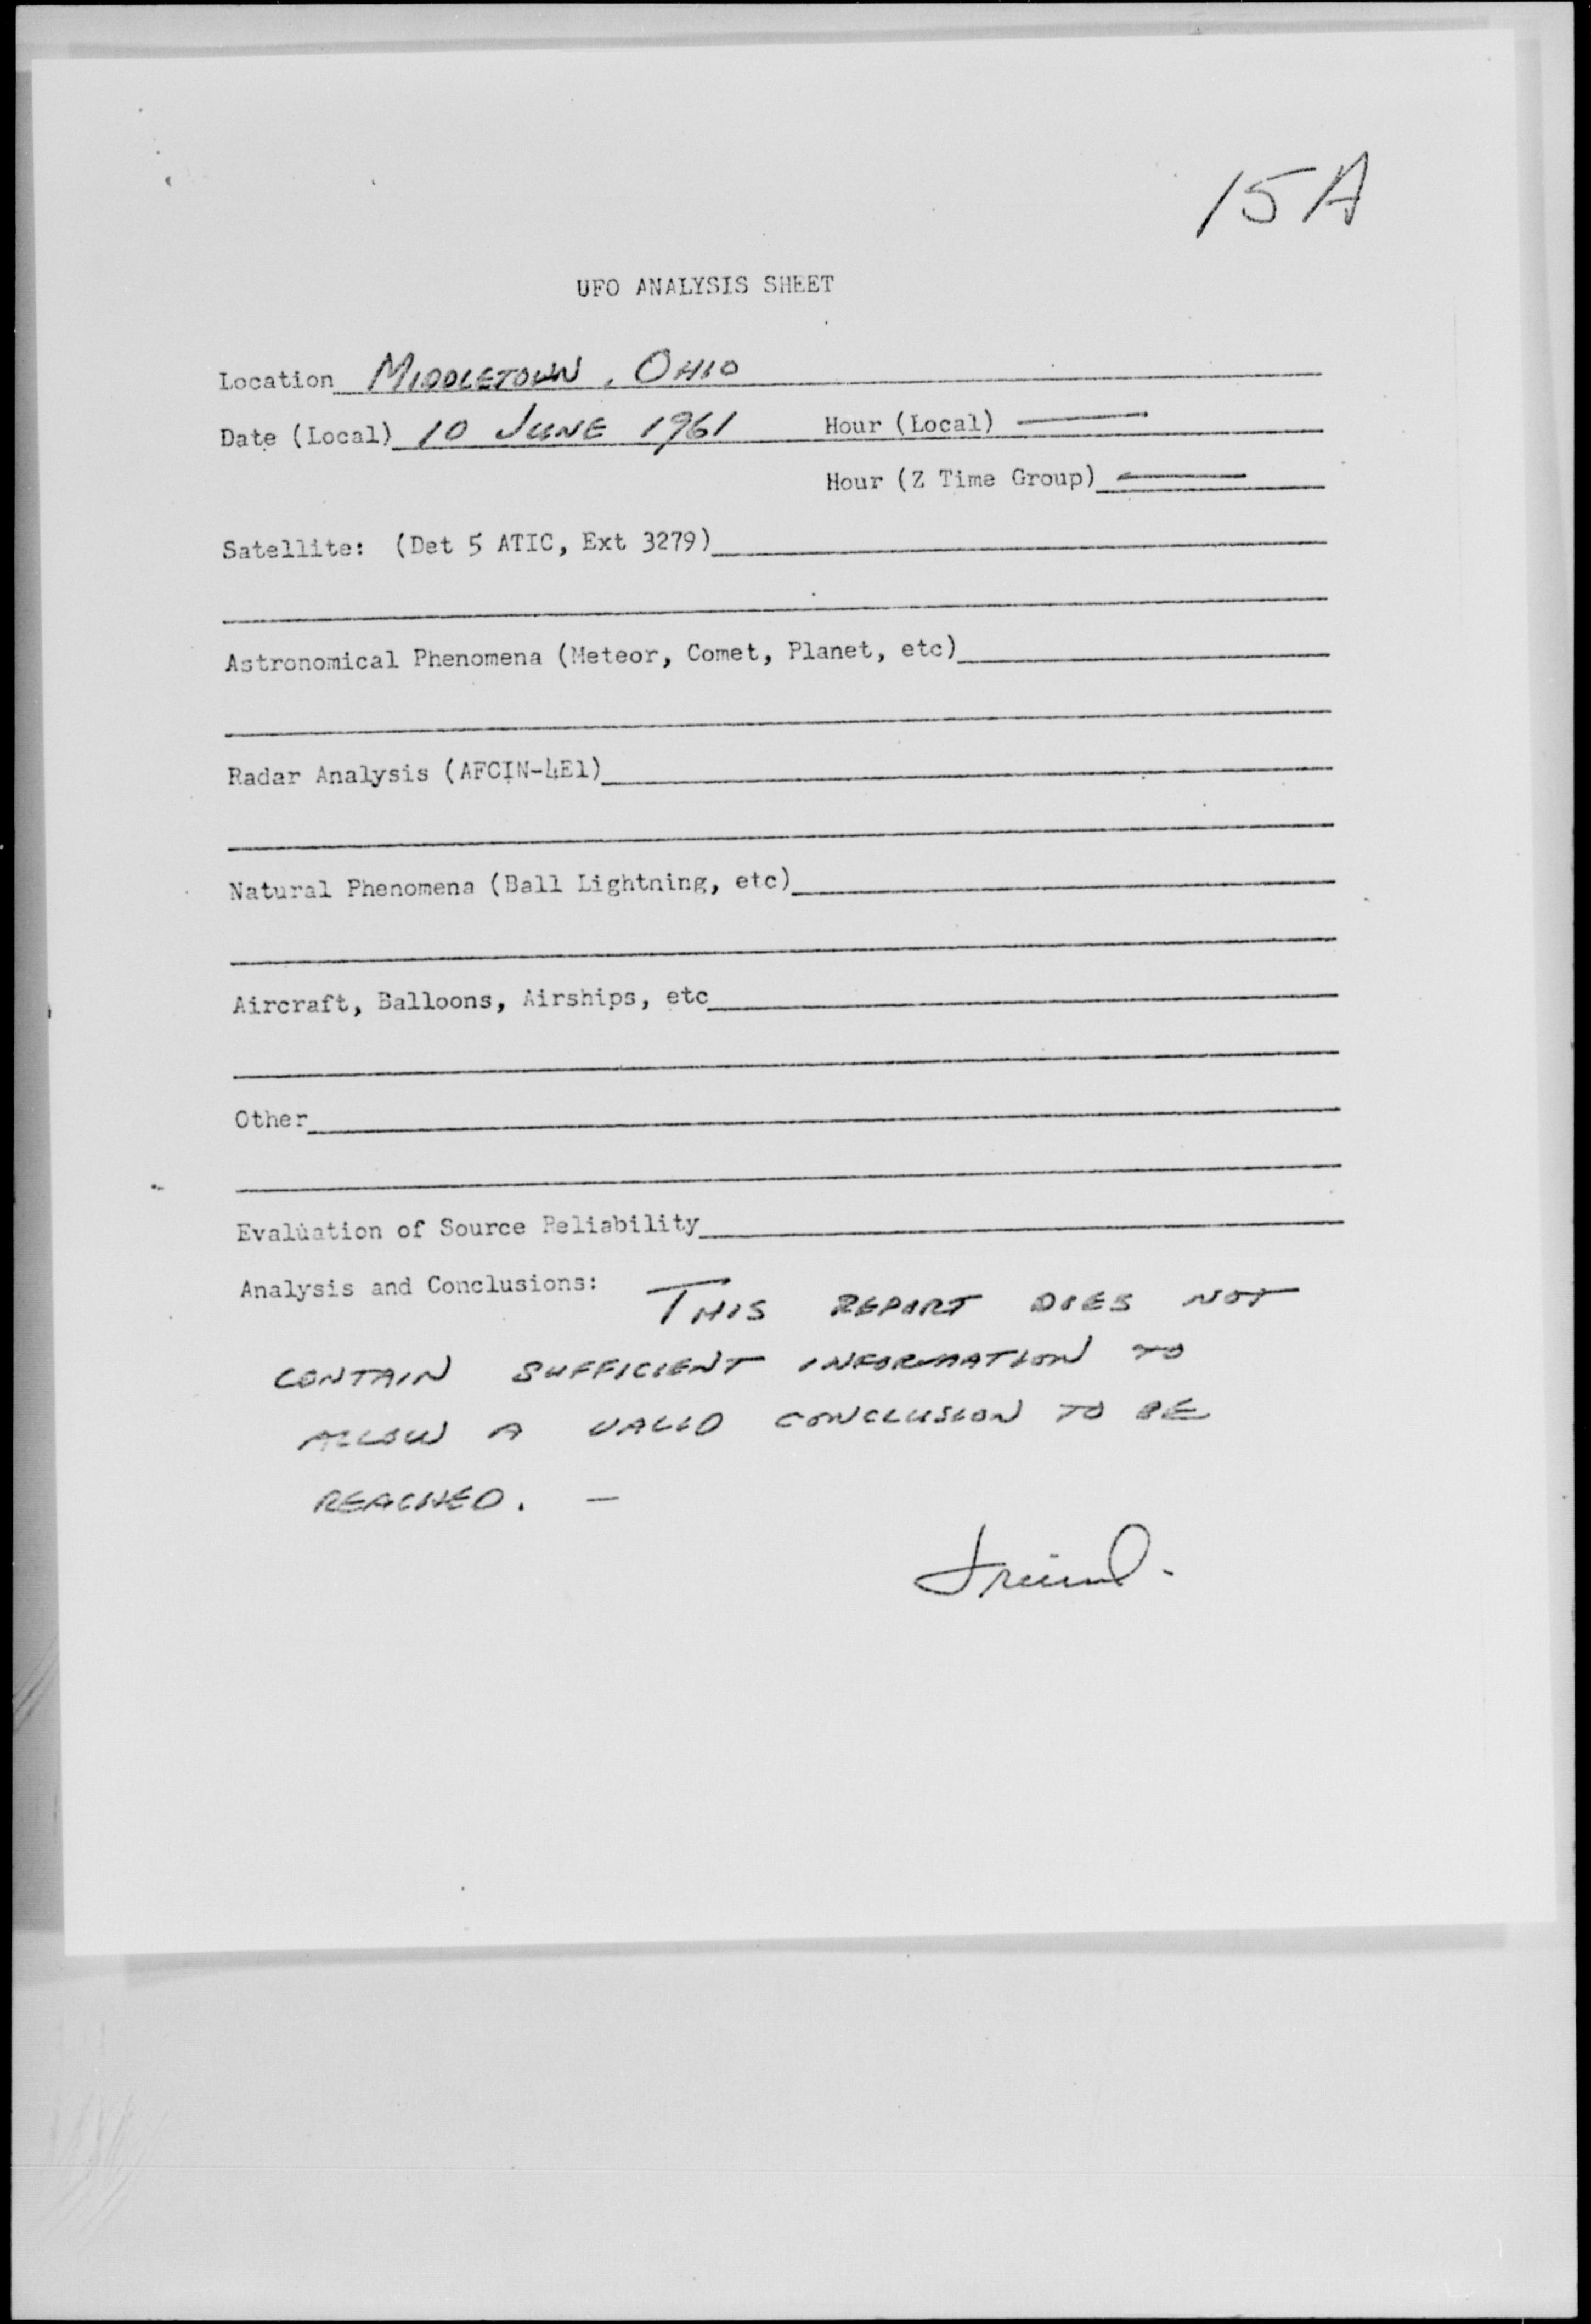 15A
UFO ANALYSIS SHEET
Location MIDDLETOWN, OHIO
Date (Local) 10 JUNE 1961 Hour (Local) —
Hour (Z Time Group) —
Satellite: (Det 5 ATIC, Ext 3279)
Astronomical Phenomena (Meteor, Comet, Planet, etc)
Radar Analysis (AFCIN-4E1)
Natural Phenomena (Ball Lightning, etc)
Aircraft, Balloons, Airships, etc
Other
Evaluation of Source Reliability
Analysis and Conclusions: THIS REPORT DOES NOT
CONTAIN SUFFICIENT INFORMATION TO
ALLOW A VALID CONCLUSION TO BE
REACHED. —
Friend.